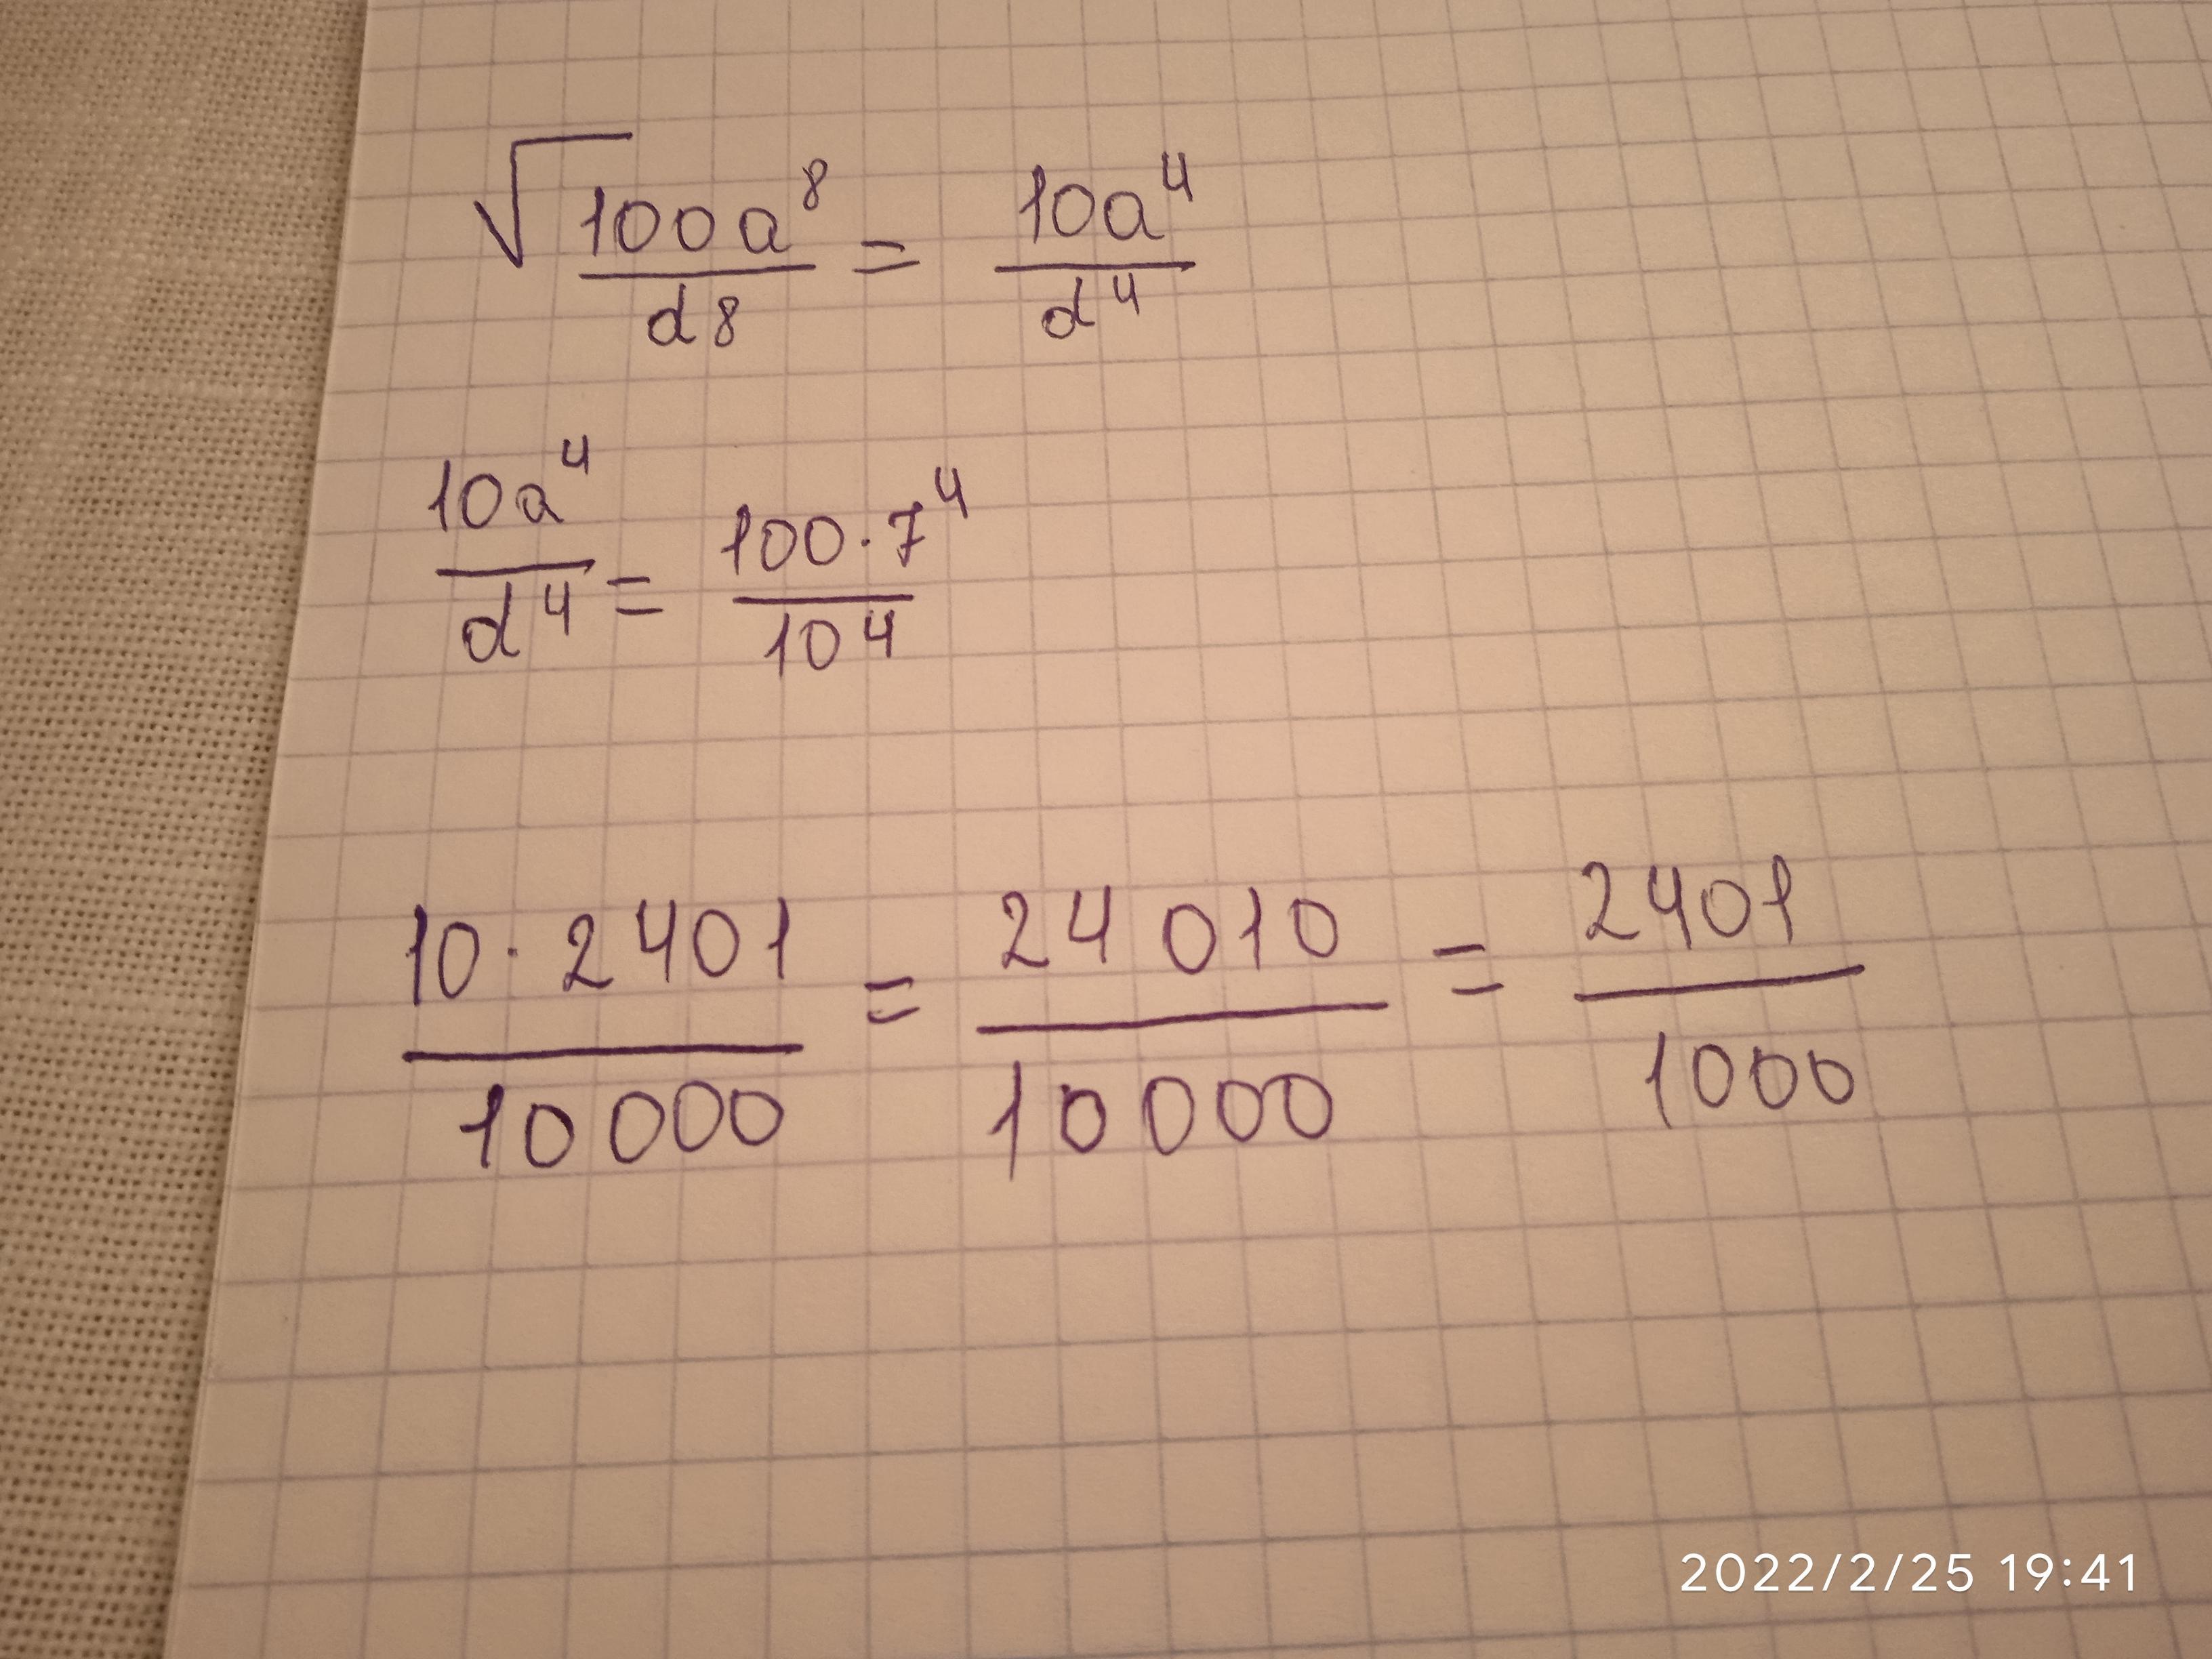 √(100a⁸/d8) = 10a⁴/d⁴
10a⁴/d⁴ = 100·7⁴/10⁴
10·2401/10000 = 24010/10000 = 2401/1000
2022/2/25 19:41